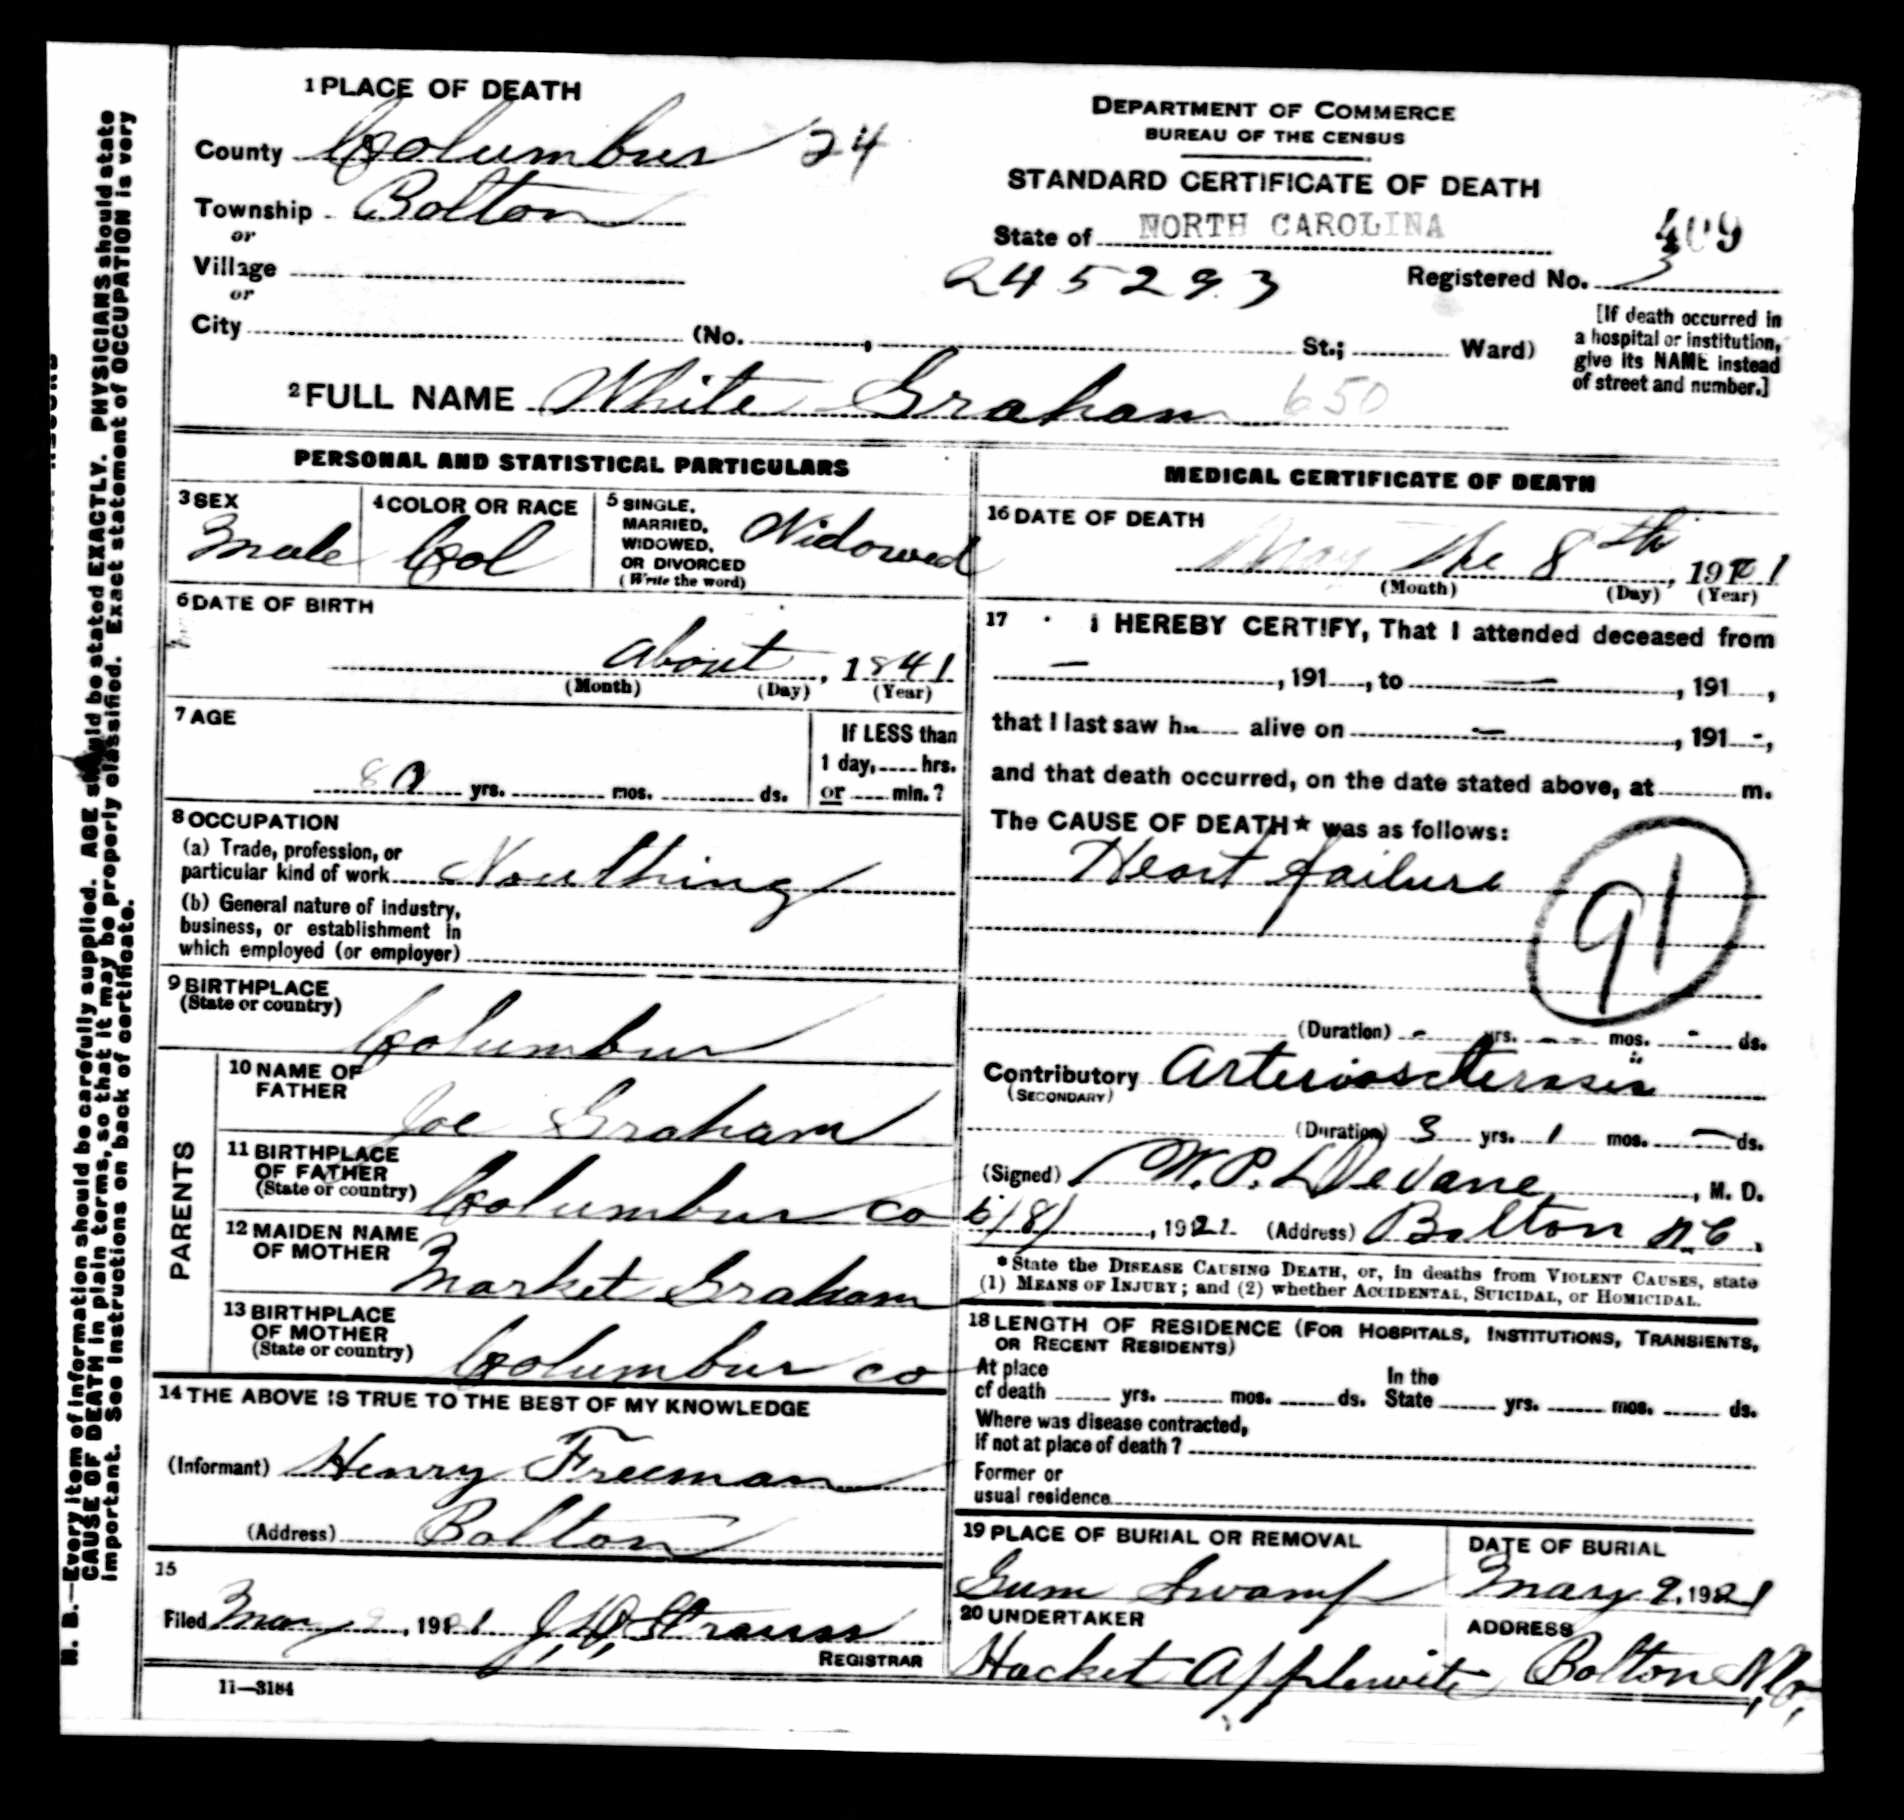 1 PLACE OF DEATH
County Columbus 24
Township Bolton
or
Village
or
City (No. , St.; Ward)
DEPARTMENT OF COMMERCE
BUREAU OF THE CENSUS
STANDARD CERTIFICATE OF DEATH
State of NORTH CAROLINA
409
245293
Registered No. 3
[If death occurred in
a hospital or institution,
give its NAME instead
of street and number.]
2 FULL NAME White Graham 650
PERSONAL AND STATISTICAL PARTICULARS
3 SEX
Male
4 COLOR OR RACE
Col
5 SINGLE,
MARRIED,
WIDOWED,
OR DIVORCED
(Write the word)
Widowed
6 DATE OF BIRTH
about , 1841
(Month) (Day) (Year)
7 AGE
80 yrs. mos. ds.
If LESS than
1 day, hrs.
or min.?
8 OCCUPATION
(a) Trade, profession, or
particular kind of work Nouthing
(b) General nature of industry,
business, or establishment in
which employed (or employer)
9 BIRTHPLACE
(State or country)
Columbus
PARENTS
10 NAME OF
FATHER
Joe Graham
11 BIRTHPLACE
OF FATHER
(State or country)
Columbus co
12 MAIDEN NAME
OF MOTHER
Market Graham
13 BIRTHPLACE
OF MOTHER
(State or country)
Columbus co
14 THE ABOVE IS TRUE TO THE BEST OF MY KNOWLEDGE
(Informant) Henry Freeman
(Address) Bolton
15
Filed May 9, 1921 J. D. Strauss
REGISTRAR
11—3184
MEDICAL CERTIFICATE OF DEATH
16 DATE OF DEATH
May the 8th, 1921
(Month) (Day) (Year)
17 I HEREBY CERTIFY, That I attended deceased from
— , 191 , to — , 191 ,
that I last saw h alive on — , 191 -,
and that death occurred, on the date stated above, at m.
The CAUSE OF DEATH* was as follows:
Heart failure
91
(Duration) - yrs. - mos. - ds.
Contributory Arteriosclerosis
(SECONDARY)
(Duration) 3 yrs. 1 mos. — ds.
(Signed) W. P. DeVane, M. D.
, 1921 (Address) Bolton N.C.
*State the DISEASE CAUSING DEATH, or, in deaths from VIOLENT CAUSES, state
(1) MEANS OF INJURY; and (2) whether ACCIDENTAL, SUICIDAL, or HOMICIDAL.
18 LENGTH OF RESIDENCE (FOR HOSPITALS, INSTITUTIONS, TRANSIENTS,
OR RECENT RESIDENTS)
At place
of death yrs. mos. ds.
In the
State yrs. mos. ds.
Where was disease contracted,
if not at place of death?
Former or
usual residence
19 PLACE OF BURIAL OR REMOVAL
Gum Swamp
DATE OF BURIAL
May 9, 1921
20 UNDERTAKER
Hacket Applewite
ADDRESS
Bolton N.C.
N. B.—Every item of information should be carefully supplied. AGE should be stated EXACTLY. PHYSICIANS should state
CAUSE OF DEATH in plain terms, so that it may be properly classified. Exact statement of OCCUPATION is very
important. See instructions on back of certificate.